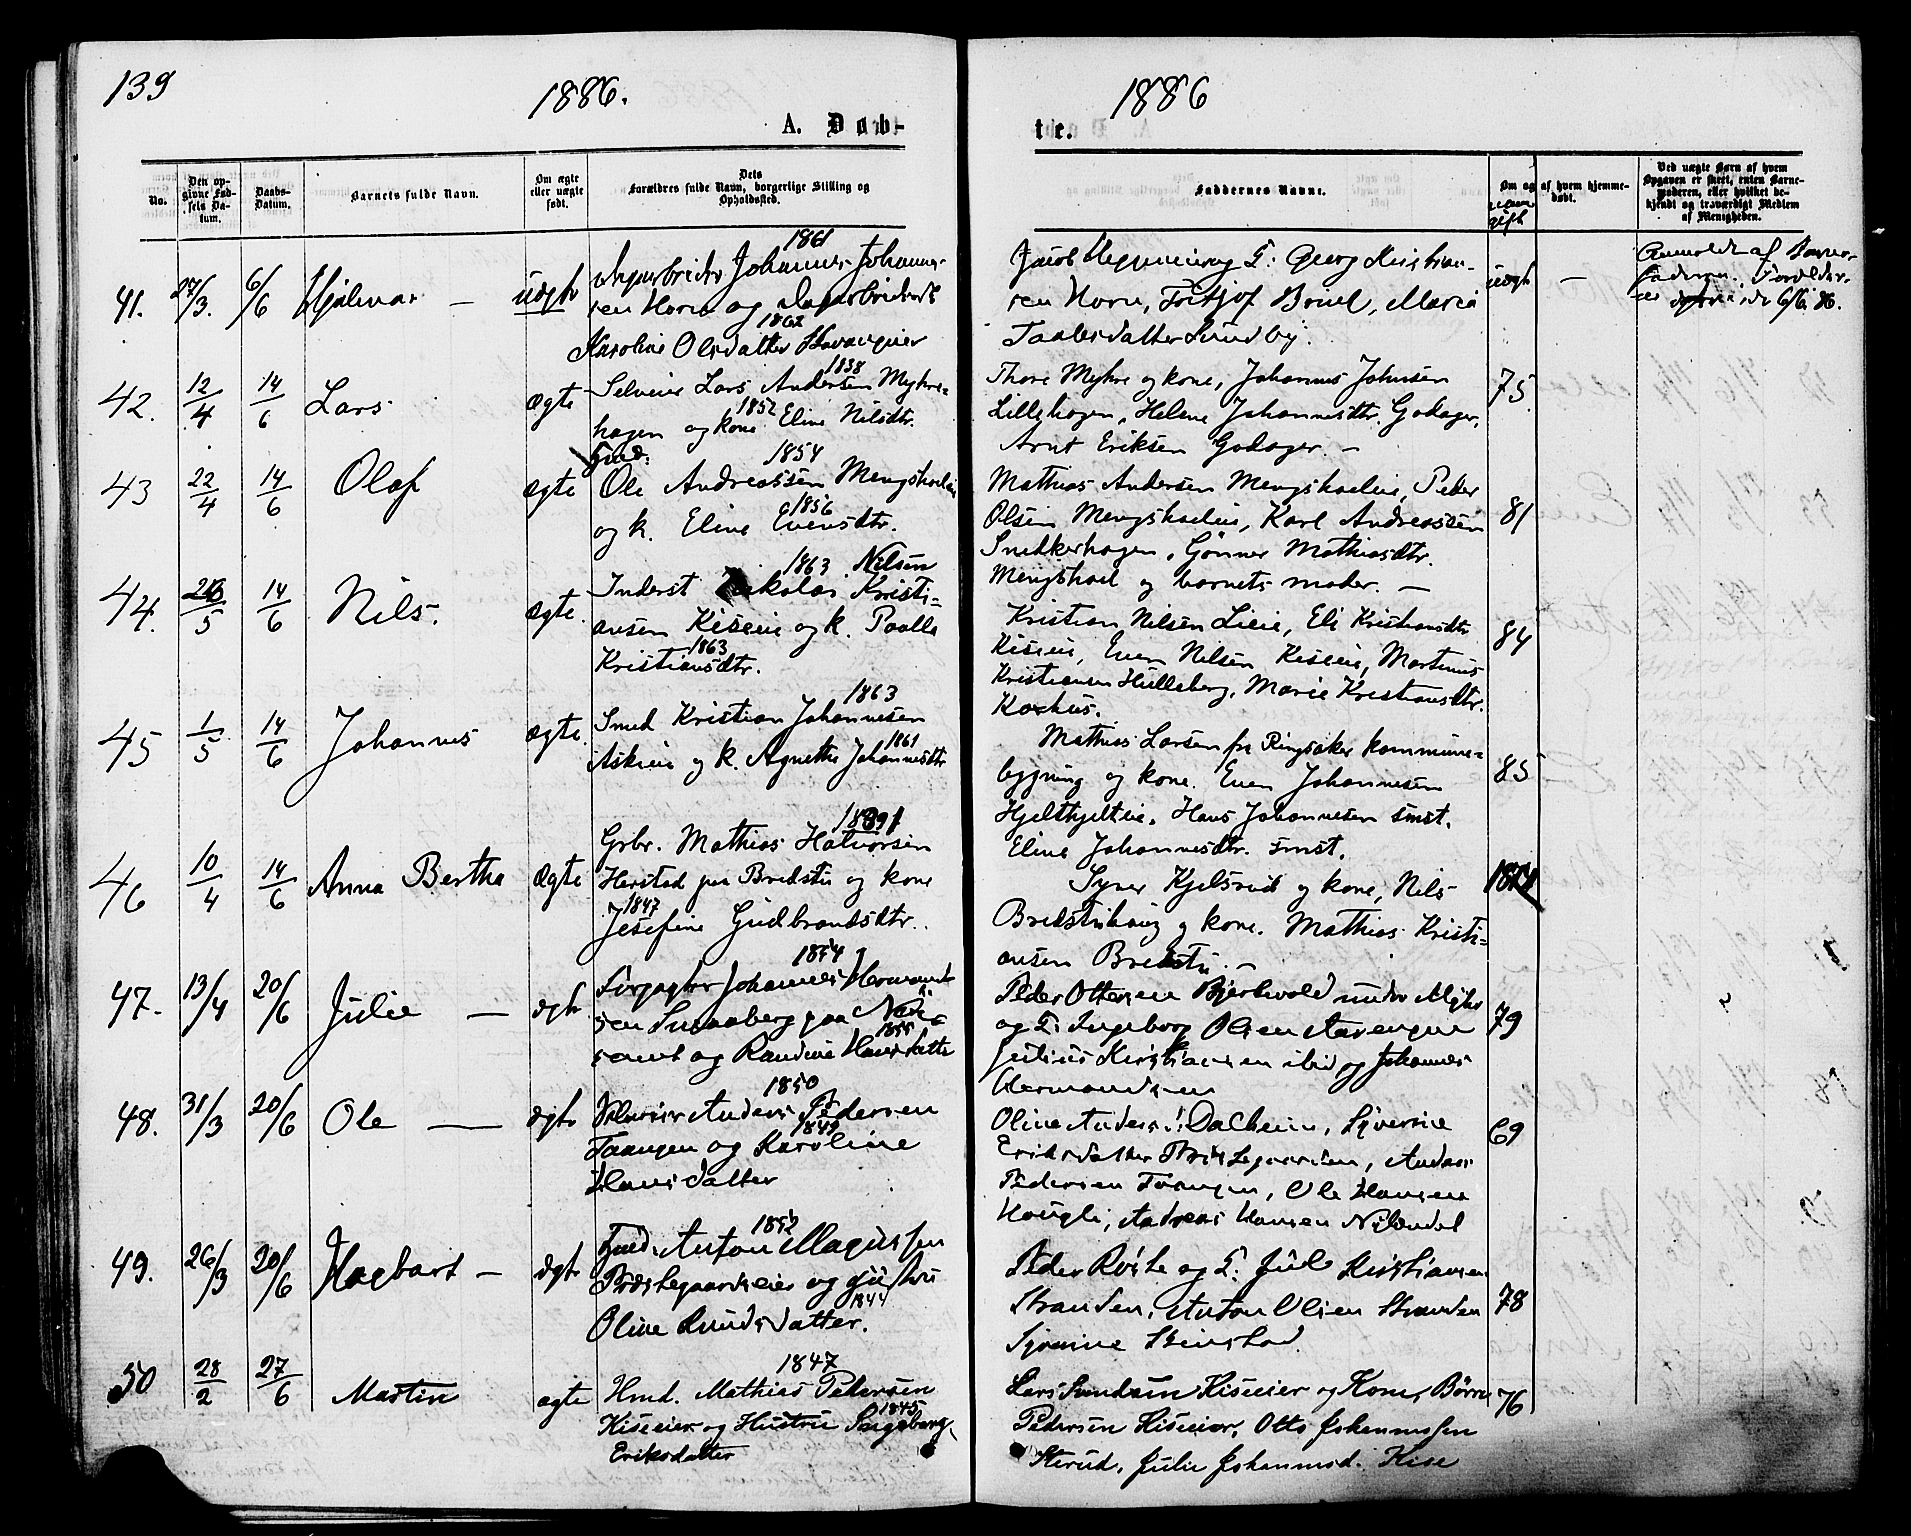 139
1886.
1886
A. Døb-
te.
No.
Den op-
givne Fød-
sels Da-
tum.
Daabs-
Datum.
Barnets fulde Navn.
Om ægte
eller uægte
født.
Dets
Forældres fulde Navn, borgerlige Stilling og
Opholdssted.
Faddernes Navne.
Om og af hvem hjemme-
døbt.
Ved uægte Børn af hvem
Opgaven er skeet, enten Barne-
moderen, eller hvilket be-
kjendt og troværdigt Medlem
af Menigheden.
41. 27/3. 6/6 Hjalmar — uægte
1861
Johannes Johannes-
sen Horn og
1862
Karoline Olsdatter Stavangeier
Georg Kristian-
sen Horn, Fritjof Bruel, Maria
Taalesdatter Sundby.
uægte —
Anmeldt af Barne-
faderen. Foreldre-
6/6 86.
42. 12/4 14/6 Lars ægte
1838
Selveier Lars Andersen Myhre-
1852
hagen og kone Eline Nilsdtr.
Thore Myhre og kone, Johannes Johnsen
Lillehagen, Helene Johannesdtr. Godager,
Arnt Eriksen Godager. —
75.
43 22/4 14/6 Olaf ægte
Hmd. 1854
Ole Andreassen Mengshoeleie
1856
og k. Eline Evensdtr.
Mathias Andersen Mengshoeleie, Peder
Olsen Mengshoeleie, Karl Andreassen
Snedkerhagen, Gønner Mathiasdtr.
Mengshoel og barnets moder. —
81
44. 28/5 14/6 Nils. ægte.
1863 Nilsen
Inderst Nikolai Kristi-
ansen Kiseeie og k. Paalle
1863
Kristiansdtr.
Kristian Nilsen Lieie, Eli Kristiansdtr
Kiseeie, Even Nilsen Kiseeie, Martinus
Kristiansen Hulleberg, Marie Kristiansdtr.
Korshus.
84
45 1/5 14/6 Johannes ægte.
1863
Smed Kristian Johannesen
1861
Askeie og k. Agnethe Johannesdtr
Mathias Larsen fra Ringsaker kommune-
bygning og kone. Even Johannesen
Hjelthjelteie, Hans Johannesen smst.
Eline Johannesdtr. smst.
85
46 10/4 14/6 Anna Bertha ægte
Grbr. Mathias Halvorsen
Herstad paa Bredstu og kone
1847
Josefine Gudbrandsdtr.
Syver Kjelsrud og kone, Nils
Bredstuhaug og kone. Mathias Kristi-
ansen Bredstu. —
47. 13/4 20/6 Julie — ægte
1854
Forpagter Johannes Hermand-
sen Smaaberg paa
1855
og Randine Hansdatter
Peder Ottersen Bjerkvold under Myhr
og F. Ingeborg Olsen
Julius Kristiansen ibid og Johannes
Hermandsen
79
48. 31/3 20/6 Ole — ægte
1850
Anders Pedersen
1849
Taangen og Karoline
Hansdatter
Oline Anders. Dalheim, Syverine
Eriksdatter Præstegaarden, Anders
Pedersen Taangen, Ole Hansen
Hougli, Andreas Hansen Nylendet
69
49. 26/3 20/6 Hagbart — ægte
1852
Hmd. Anton Magnussen
Præstegaardseier og hustru
1844
Oline Knudsdatter.
Peder Røste og F. Jul. Kristiansen
Stranden, Anton Olsen Stranden
Syverine Stenstad.
78
50 28/2 27/6 Martin ægte
1847
Hmd. Mathias Pedersen
1845
Kiseeier og Hustru Ingeborg
Eriksdatter
Lars Svendsen Kiseeier og Kone, Børre
Pedersen Kiseeier, Otto Johannessen
Sterud, Julie Johannesd. Kise
76